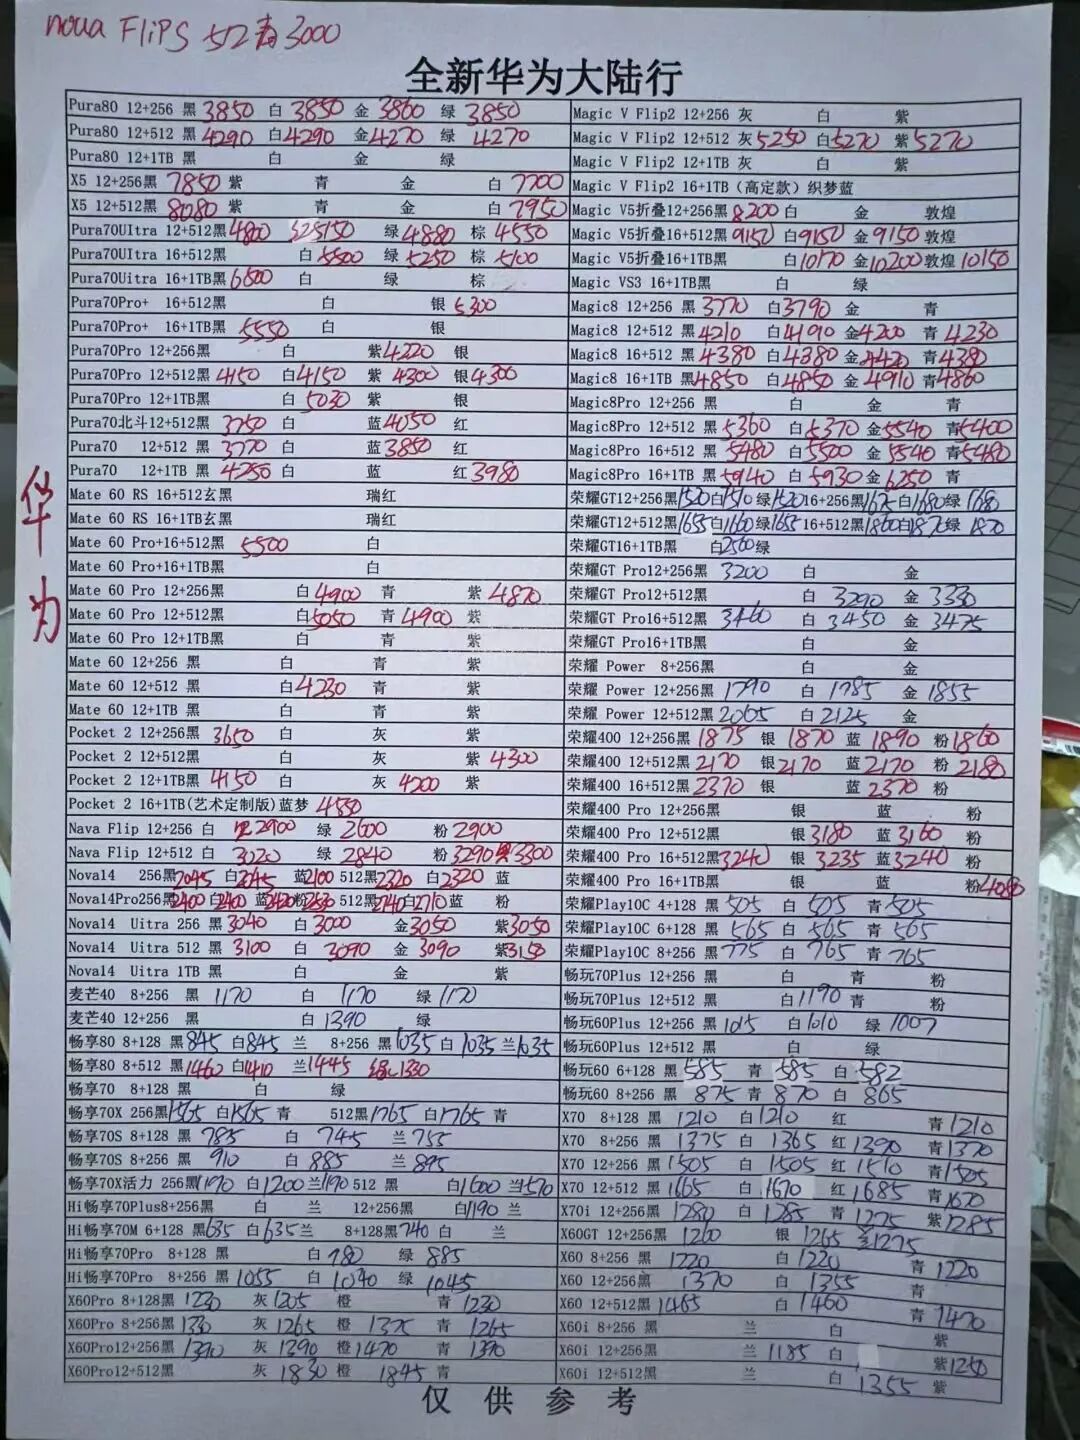 noua FLiPS 512青3000
全新华为大陆行
华为
Pura80 12+256 黑 3850 白 3850 金 3860 绿 3850
Pura80 12+512 黑 4290 白 4290 金 4270 绿 4270
Pura80 12+1TB 黑 白 金 绿
X5 12+256黑 7850 紫 青 金 白 7700
X5 12+512黑 8080 紫 青 金 白 7950
Pura70UItra 12+512黑 4800 5150 绿 4880 棕 4550
Pura70UItra 16+512黑 白 5500 绿 5250 棕 5100
Pura70Uitra 16+1TB黑 6500 白 绿 棕
Pura70Pro+ 16+512黑 白 银 5300
Pura70Pro+ 16+1TB黑 5550 白 银
Pura70Pro 12+256黑 白 紫 4220 银
Pura70Pro 12+512黑 4150 白 4150 紫 4300 银 4300
Pura70Pro 12+1TB黑 白 5030 紫 银
Pura70北斗12+512黑 3750 白 蓝 4050 红
Pura70 12+512 黑 3770 白 蓝 3850 红
Pura70 12+1TB 黑 4250 白 蓝 红 3980
Mate 60 RS 16+512玄黑 瑞红
Mate 60 RS 16+1TB玄黑 瑞红
Mate 60 Pro+16+512黑 5500 白
Mate 60 Pro+16+1TB黑 白
Mate 60 Pro 12+256黑 白 4900 青 紫 4870
Mate 60 Pro 12+512黑 白 5050 青 4900 紫
Mate 60 Pro 12+1TB黑 白 青 紫
Mate 60 12+256 黑 白 青 紫
Mate 60 12+512 黑 白 4230 青 紫
Mate 60 12+1TB 黑 白 青 紫
Pocket 2 12+256黑 3650 白 灰 紫
Pocket 2 12+512黑 白 灰 紫 4300
Pocket 2 12+1TB黑 4150 白 灰 4200 紫
Pocket 2 16+1TB(艺术定制版)蓝梦 4550
Nava Flip 12+256 白 2900 绿 2600 粉 2900
Nava Flip 12+512 白 3020 绿 2840 粉 3290 3300
Nova14 256黑 2045 白 2045 蓝 2100 512黑 2320 白 2320 蓝
Nova14Pro256黑 2400 白 2400 蓝 2420 粉 512黑 2740 白 2710 蓝 粉
Nova14 Uitra 256 黑 3040 白 3000 金 3050 紫 3050
Nova14 Uitra 512 黑 3100 白 3090 金 3090 紫 3150
Nova14 Uitra 1TB 黑 白 金 紫
麦芒40 8+256 黑 1170 白 1170 绿 1170
麦芒40 12+256 黑 白 1390 绿
畅享80 8+128 黑 845 白 845 兰 8+256 黑 1035 白 1035 兰 1035
畅享80 8+512 黑 1460 白 1410 兰 1445 绿 1330
畅享70 8+128 黑 白 绿
畅享70X 256黑 1565 白 1565 青 512黑 1765 白 1765 青
畅享70S 8+128 黑 785 白 745 兰 755
畅享70S 8+256 黑 910 白 885 兰 895
畅享70X活力 256黑 1170 白 1200 兰 1190 512 黑 白 1600 兰 1570
Hi畅享70Plus8+256 白 兰 12+256黑 白 1190 兰
Hi畅享70M 6+128 黑 635 白 635 兰 8+128黑 740 白 兰
Hi畅享70Pro 8+128 黑 白 980 绿 885
Hi畅享70Pro 8+256 黑 1055 白 1040 绿 1045
X60Pro 8+128黑 1230 灰 1205 橙 青 1230
X60Pro 8+256黑 1330 灰 1265 橙 1375 青 1265
X60Pro12+256黑 1390 灰 1390 橙 1470 青 1390
X60Pro12+512黑 灰 1830 橙 1845 青
Magic V Flip2 12+256 灰 白 紫
Magic V Flip2 12+512 灰 5250 白 5270 紫 5270
Magic V Flip2 12+1TB 灰 白 紫
Magic V Flip2 16+1TB（高定款）织梦蓝
Magic V5折叠12+256黑 8200 白 金 敦煌
Magic V5折叠16+512黑 9150 白 9150 金 9150 敦煌
Magic V5折叠16+1TB黑 白 10170 金 10200 敦煌 10150
Magic VS3 16+1TB黑 白 绿
Magic8 12+256 黑 3770 白 3790 金 青
Magic8 12+512 黑 4210 白 4190 金 4200 青 4230
Magic8 16+512 黑 4380 白 4380 金 4420 青 4380
Magic8 16+1TB 黑 4850 白 4850 金 4910 青 4860
Magic8Pro 12+256 黑 白 金 青
Magic8Pro 12+512 黑 5360 白 5370 金 5540 青 5400
Magic8Pro 16+512 黑 5480 白 5500 金 5540 青 5480
Magic8Pro 16+1TB 黑 5940 白 5930 金 6250 青
荣耀GT12+256黑 1520 白 1510 绿 1520 16+256黑 1675 白 1680 绿 1680
荣耀GT12+512黑 1655 白 1660 绿 1655 16+512黑 1860 白 1870 绿 1870
荣耀GT16+1TB黑 白 2560 绿
荣耀GT Pro12+256黑 3200 白 金
荣耀GT Pro12+512黑 白 3290 金 3330
荣耀GT Pro16+512黑 3460 白 3450 金 3475
荣耀GT Pro16+1TB黑 白 金
荣耀 Power 8+256黑 白 金
荣耀 Power 12+256黑 1790 白 1785 金 1855
荣耀 Power 12+512黑 2065 白 2125 金
荣耀400 12+256黑 1875 银 1870 蓝 1890 粉 1860
荣耀400 12+512黑 2170 银 2170 蓝 2170 粉 2180
荣耀400 16+512黑 2370 银 蓝 2370 粉
荣耀400 Pro 12+256黑 银 蓝 粉
荣耀400 Pro 12+512黑 银 3180 蓝 3160 粉
荣耀400 Pro 16+512黑 3240 银 3235 蓝 3240 粉
荣耀400 Pro 16+1TB黑 银 蓝 粉 4080
荣耀Play10C 4+128 黑 505 白 505 青 505
荣耀Play10C 6+128 黑 565 白 565 青 565
荣耀Play10C 8+256 黑 775 白 765 青 765
畅玩70Plus 12+256 黑 白 青 粉
畅玩70Plus 12+512 黑 白 1190 青 粉
畅玩60Plus 12+256 黑 1015 白 1010 绿 1007
畅玩60Plus 12+512 黑 白 绿
畅玩60 6+128 黑 585 青 585 白 582
畅玩60 8+256 黑 875 青 870 白 865
X70 8+128 黑 1210 白 1210 红 青 1210
X70 8+256 黑 1375 白 1365 红 1390 青 1370
X70 12+256 黑 1505 白 1505 红 1510 青 1505
X70 12+512 黑 1665 白 1670 红 1685 青 1670
X70i 12+256黑 1280 白 1285 青 1275 紫 1285
X60GT 12+256黑 1260 银 1265 兰 1275
X60 8+256 黑 1220 白 1220 青 1220
X60 12+256黑 1370 白 1355 青
X60 12+512黑 1465 白 1460 青 1470
X60i 8+256 黑 兰 白 紫
X60i 12+256黑 兰 1185 白 紫 1250
X60i 12+512黑 兰 白 1355 紫
仅供参考